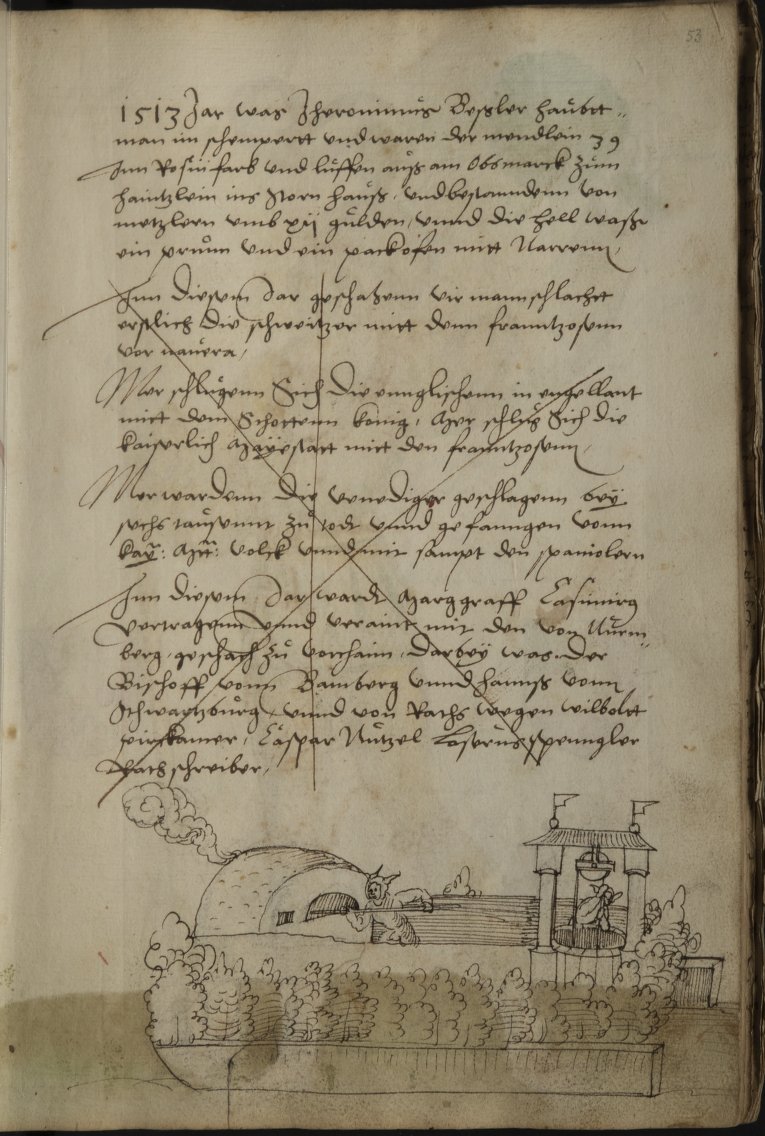 53
1513 Jar was Jheronimus Bessler haubtt„
man im schempertt und waren der mendlein 39
Inn Rosin farb und luffen auss am Obsmarck zum
haintzlein ins Storn hauss, und bestanndenn von
metzlern umb xij gulden, unnd die hell wasz
ein prunn und ein packofen mitt Narrenn,
Inn diesem Jar geschahenn vir mannschlachtt
erstlich die schweitzer mitt denn franntzosenn
vor navera,
Mer schlugenn Sich die ennglischenn in engellant
mitt dem Schottenn konig, Mer schlug Sich die
kaiserlich Mayestatt mitt den franntzosenn,
Mer wardenn die venediger geschlagenn bey
sechs tausennt zu todt unnd gefanngen vonn
kay: Mt: volck unnd mit sampt den spaniolern
Inn diesem Jar wardt Marggraff Casimirg
vertragenn unnd veraint mit den von Nurm„
berg, geschach zu vorchaim, darbey was der
Bischoff vonn Bamberg unnd hannss vonn
Schwartzburg, unnd von Raths wegen wilboltt
pirkamer, Caspar Nutzel Laserus Spenngler
Rathschreiber,